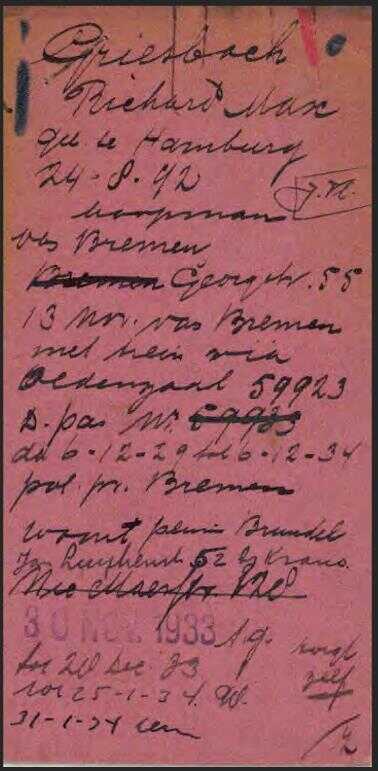 Griesbach
Richard Max
geb te Hamburg
24-8-92
J.N.
koopman
vas Bremen
Bremen Georgstr. 55
13 Nov. vas Bremen
met trein via
Oldenzaal 59923
D. pas Nr. 69933
dd 6-12-29 tot 6-12-34
pol. pr. Bremen
woont
52 bij Kraus
30 NOV. 1933
zorgt
tot 20 Dec. 33
zelf
tot 25-1-34. W.
31-1-34